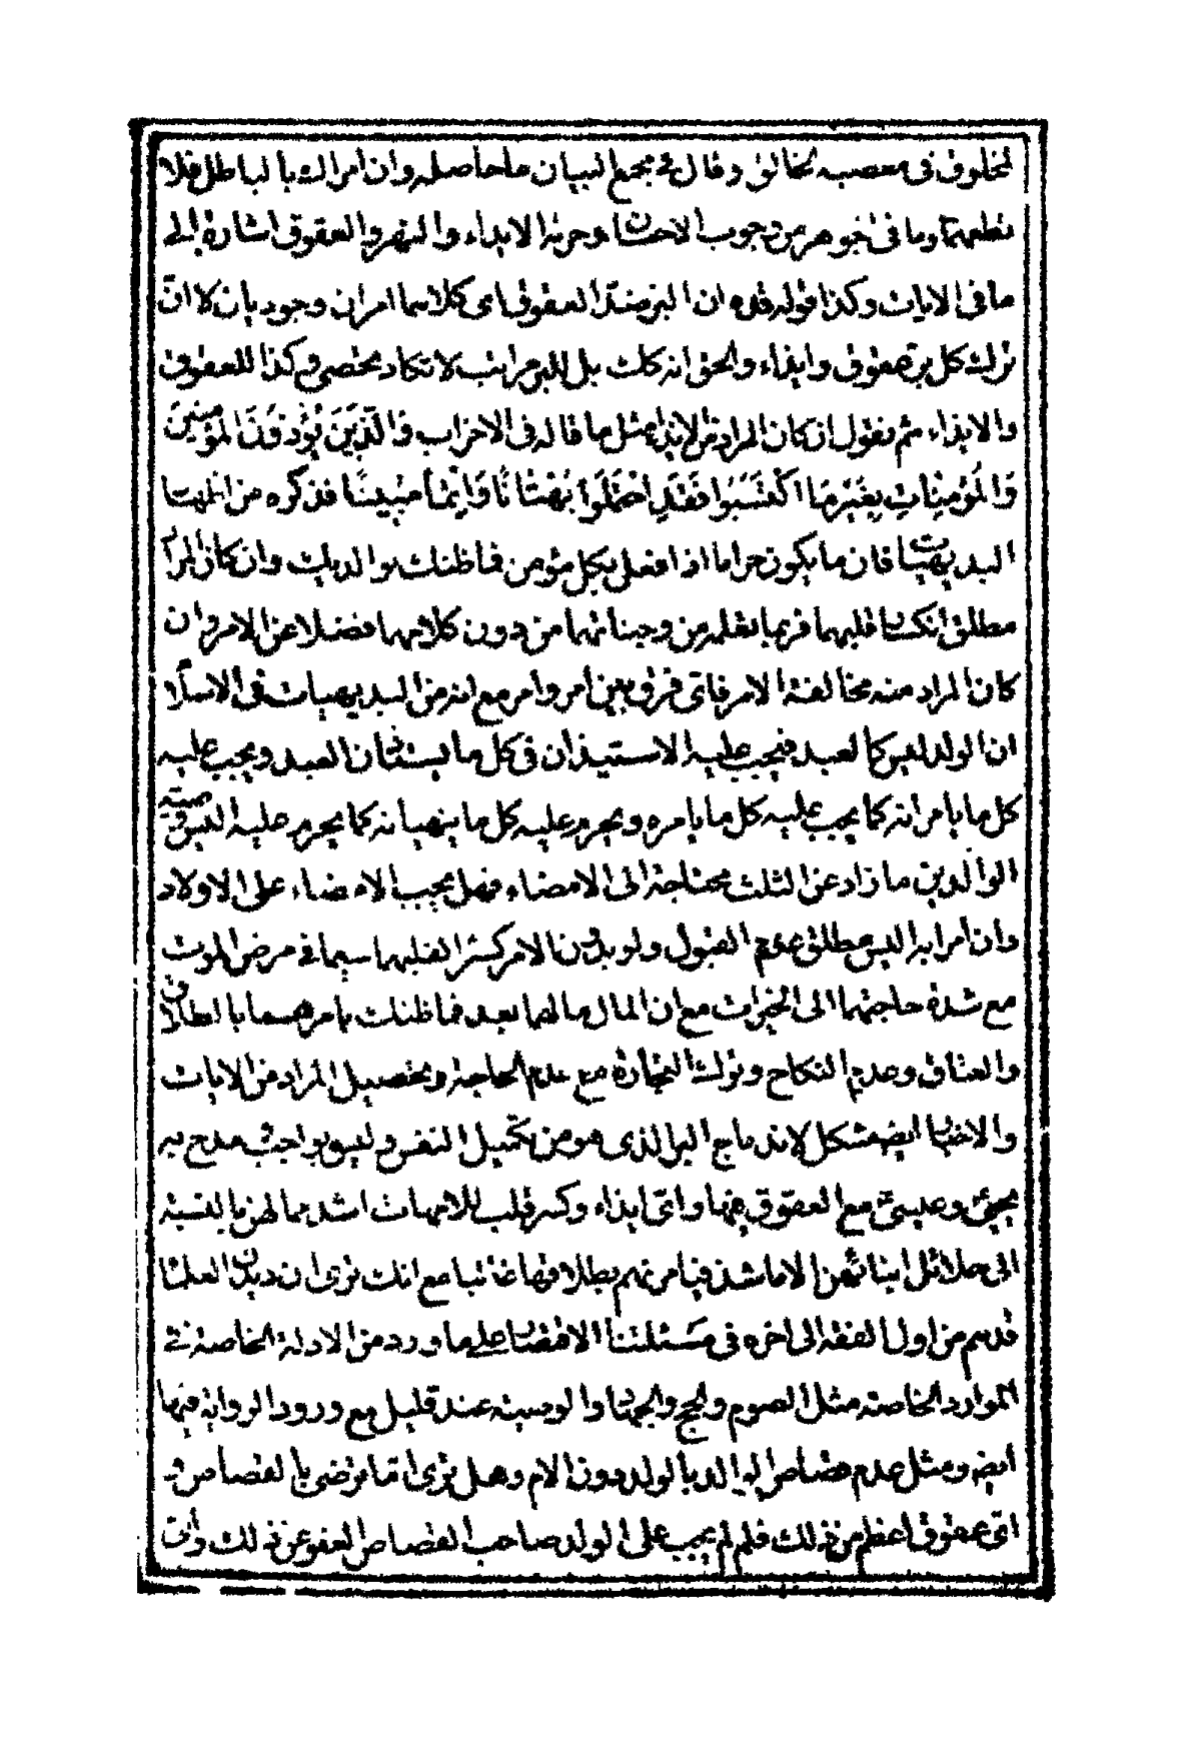 لمخلوق فی معصیه الخالق وقال فی مجمع البیان ما حاصله وان امراك بالباطل فلا
تطعهما وما فی الجوهر من وجوب الاحسان وحرمة الایذاء والنهر والعقوق اشارة الی
ما فی الایات وکذا قوله قده ان البر ضد العقوق ای کلاهما امران وجودیان لا ان
ترك کل بر عقوق وایذاء والحق انه كك بل للبر مراتب لا تکاد تحصی وکذا للعقوق
والایذاء ثم نقول ان کان المراد من الایذاء مثل ما قاله فی الاحزاب وَالَّذینَ یُؤْذُونَ الْمُؤْمِنینَ
وَالْمُؤْمِناتِ بِغَیْرِ مَا اکْتَسَبُوا فَقَدِ احْتَمَلُوا بُهْتَانًا وَاِثْمًا مُبِینًا فذکره من
البدیهیات فان ما یکون حراما اذا فعل بکل مؤمن فما ظنك بوالدیك وان کان المراد
مطلق انکسار قلبهما فربما نعلمه من وجناتهما من دون کلامهما فضلا عن الامر وان
کان المراد منه مخالفة الامر فای فرق بین امر وامر مع انه من البدیهیات فی الاسلام
ان الولد لیس کالعبد فیجب علیه الاستیذان فی کل ما یستاذن العبد ویجب علیه
کل ما یامرانه کما یجب علیه کل ما یامره ویحرم علیه کل ما ینهیانه کما یحرم علیه الیس وصیته
الوالدین ما زاد عن الثلث محتاجة الی الامضاء فهل یجب الامضاء علی الاولاد
وان امرا به الیس مطلق عدم القبول ولو بدون الامر کسرا لقلبهما سیما فی مرض الموت
مع شدة حاجتهما الی الخیرات مع ان المال مالهما بعد فما ظنك بامرهما بالطلاق
والعتاق وعدم النکاح وترك التجارة مع عدم الحاجة وتحصیل المراد من الایات
والاخبار ایضا مشکل لاندماج البر الذی هو من تکمیل النفس ولیس بواجب مدح به
یحیی وعیسی مع العقوق فیها وای ایذاء وکسر قلب للامهات اشد مما لهن بالنسبة
الی حلائل ابنائهن الا ما شذ فیامرنهم بطلاقها غالبا مع انك تری ان دیدن العلماء
قدیم من اول الفقه الی اخره فی مسئلتنا الاقتصار علی ما ورد من الادلة الخاصة فی
الموارد الخاصة مثل الصوم والحج والجهاد والوصیة عند قلیل مع ورود الروایة فیها
ایضا ومثل عدم قصاص الوالد بالولد دون الام وهل تری اما ترضی بالقصاص و
ای عقوق اعظم من ذلك فلم لم یجب علی الولد صاحب القصاص العفو عن ذلك وان